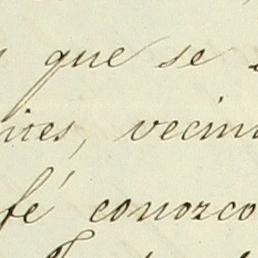 que se
vecin
fé conozco